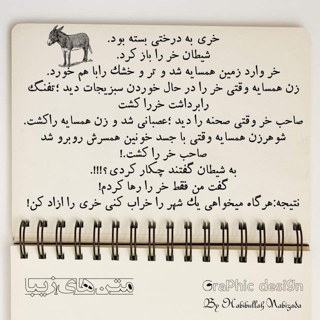 خری به درختی بسته بود.
شیطان خر را باز کرد.
خر وارد زمین همسایه شد و تر و خشک رابا هم خورد.
زن همسایه وقتی خر را در حال خوردن سبزیجات دید ؛تفنگ
رابرداشت خررا کشت
صاحب خر وقتی صحنه را دید ؛عصبانی شد و زن همسایه راکشت.
شوهرزن همسایه وقتی با جسد خونین همسرش روبرو شد
صاحب خر را کشت.!
به شیطان گفتند چکار کردی ؟!!!.
گفت من فقط خر را رها کردم!
نتیجه:هرگاه میخواهی یك شهر را خراب کنی خری را ازاد کن!
متن های زیبا
GraPhic desi9n
By Habibullah Nabizada